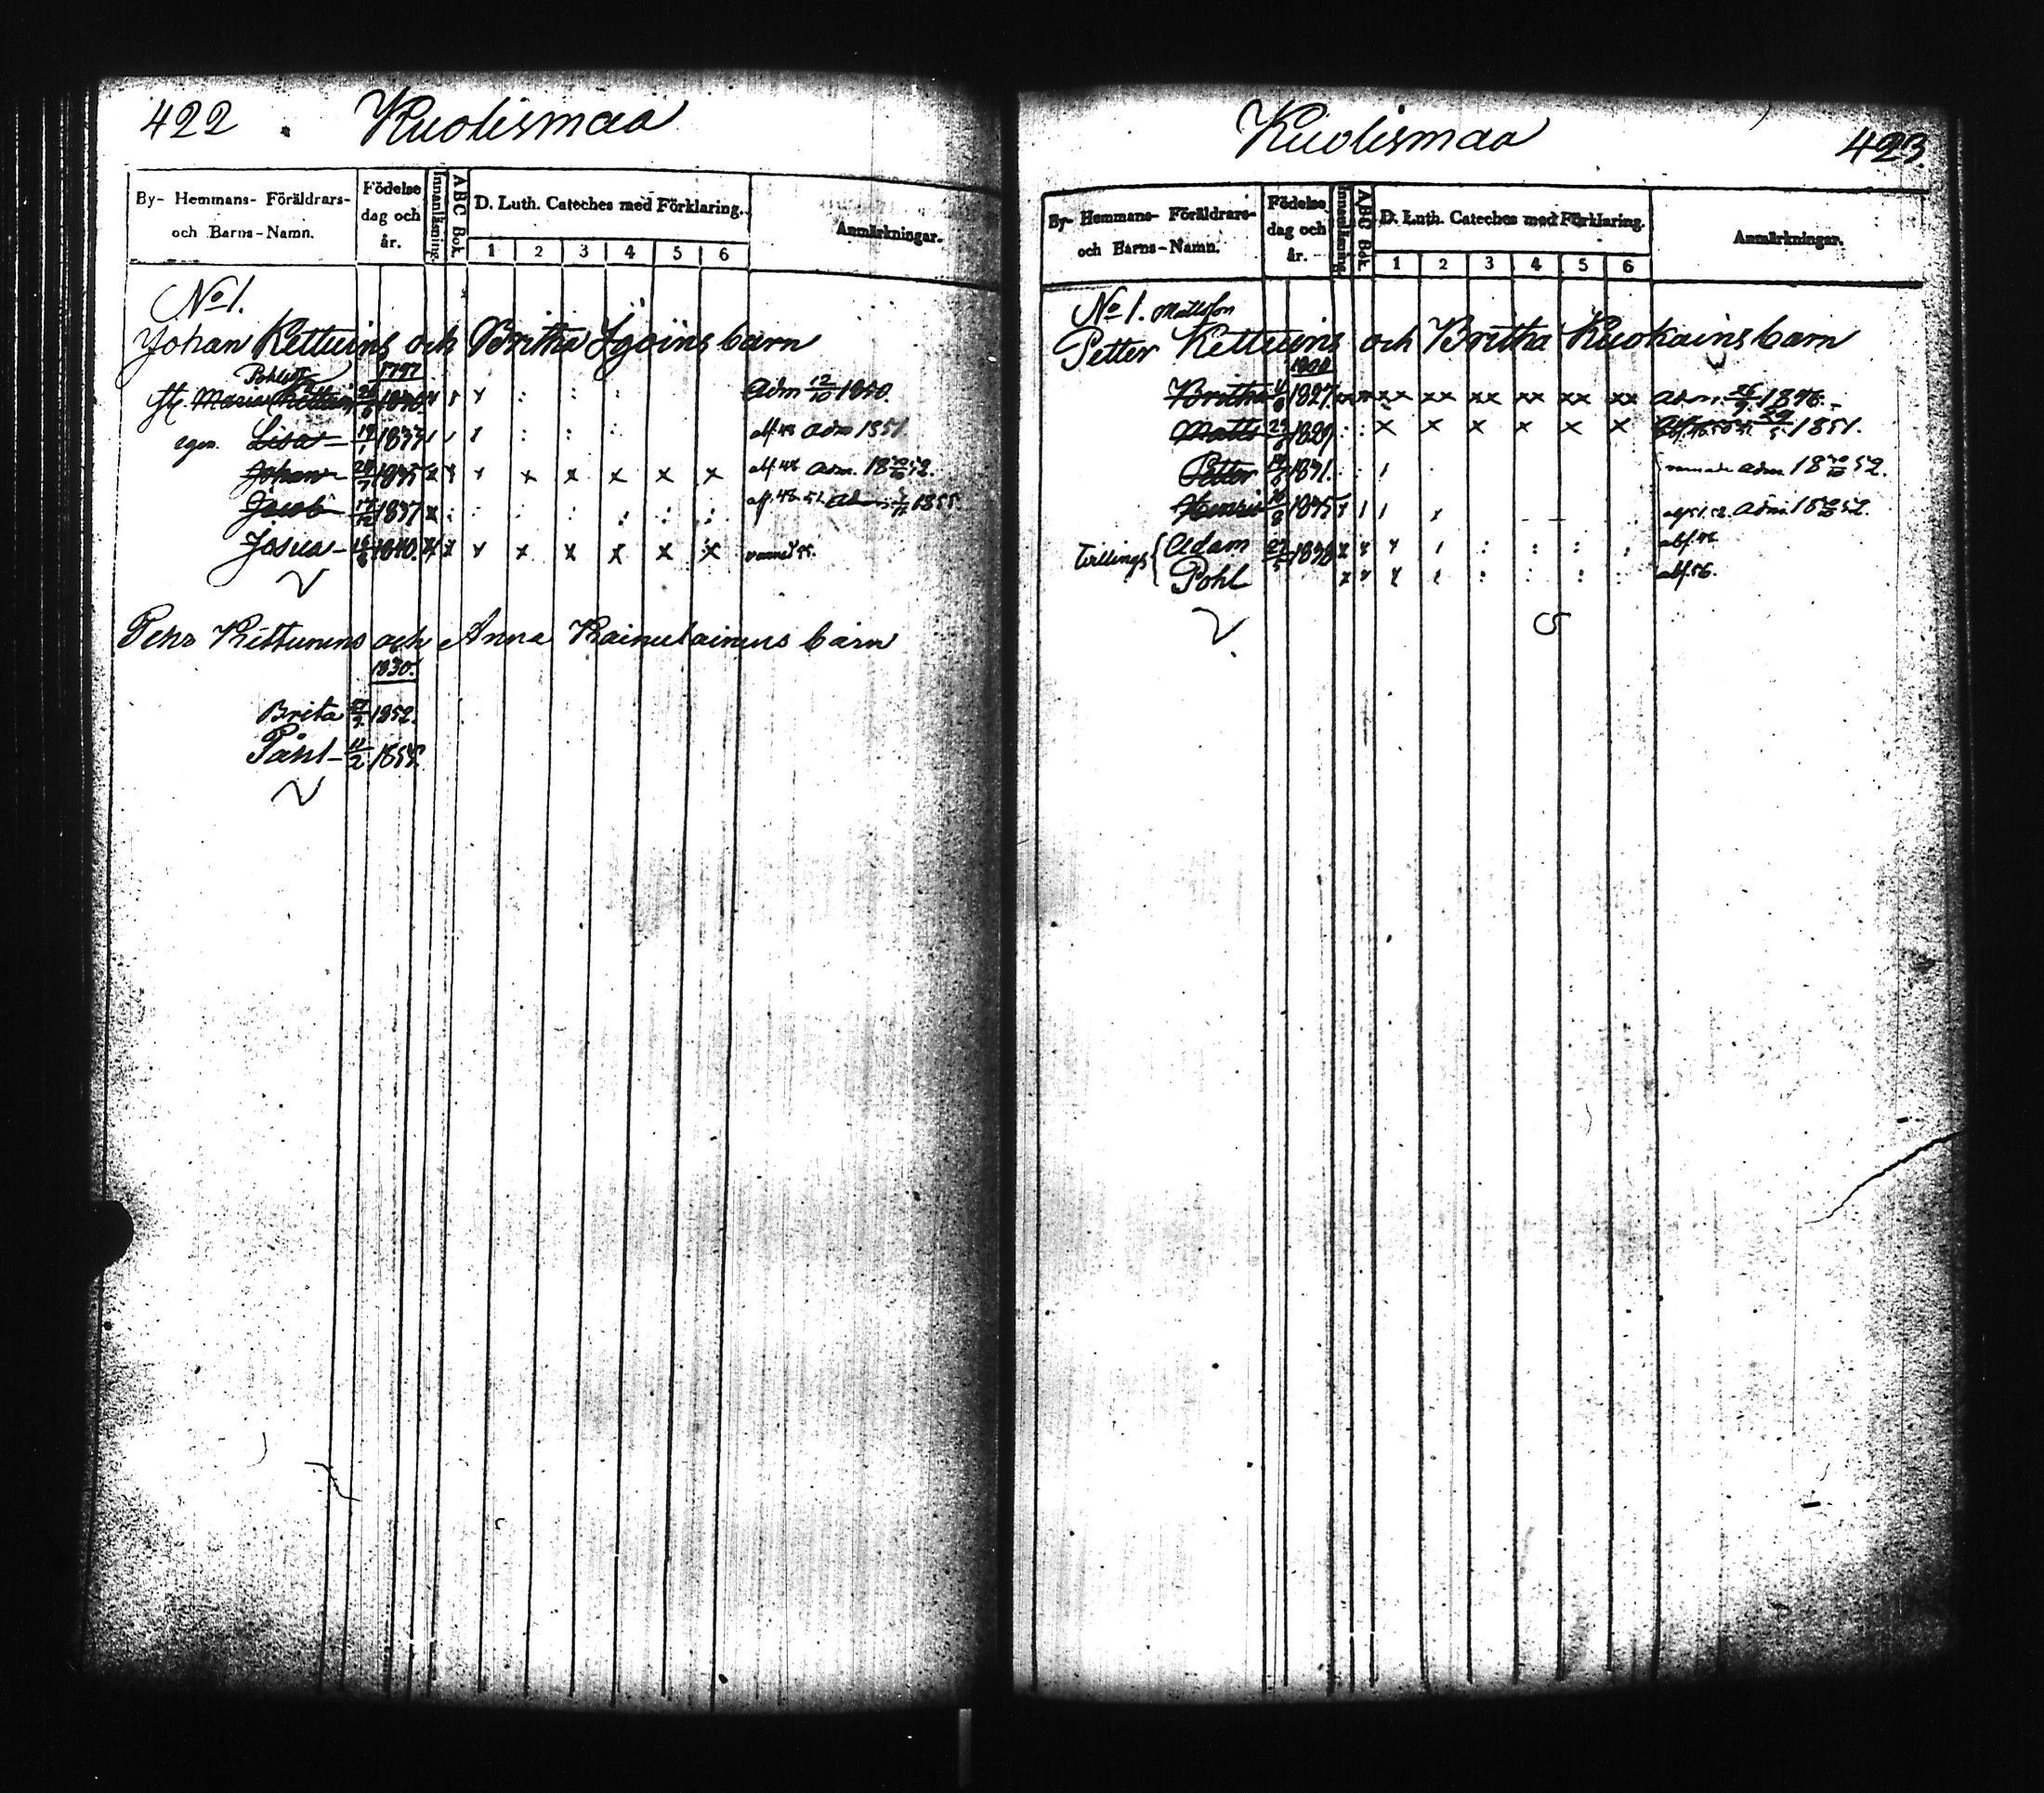 422 Kuolismaa
By- Hemmans- Föräldrars- och Barns-Namn. Födelse dag och år. Innanläsning. ABC Bok. D. Luth. Cateches med Förklaring. Anmärkningar.
1 2 3 4 5 6
No 1.
Johan Kettuins och Britha Igoins barn
1797
Pohlsdr
Maria Kettuin Adm 12/10 1840.
egen Lisa 19/1 1833 abf. 48 Adm 1851
Johan 1835 x x x x x abf. 48 Adm. 1852.
Jacob 17/12 1837 x 1855.
Josua 1840. x x x x x x
Pehr Kettunens och Anna Kainulainens barn
1830.
Brita 1852.
Påhl 11/2 1855.
Kuolismaa 423.
By- Hemmans- Föräldrars- och Barns-Namn. Födelse dag och år. Innanläsning. ABC Bok. D. Luth. Cateches med Förklaring. Anmärkningar.
1 2 3 4 5 6
No 1. Mattsson
Petter Kettuins och Britha Kuokains barn
1800
Britha 1827. xx xx xx xx xx xx Adm. 1846.
Matts 1829 x x x x x x 1851.
Petter 1831. Adm. 1852.
Henric 1835 Adm 1852.
Tvillings { Adam 27/5 1838 abf. 48
Pohl abf. 56.